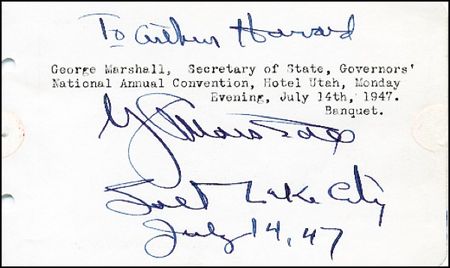 To Arthur Havard
George Marshall, Secretary of State, Governors'
National Annual Convention, Hotel Utah, Monday
Evening, July 14th, 1947.
Banquet.
G. Marshall
Salt Lake City
July 14, 47